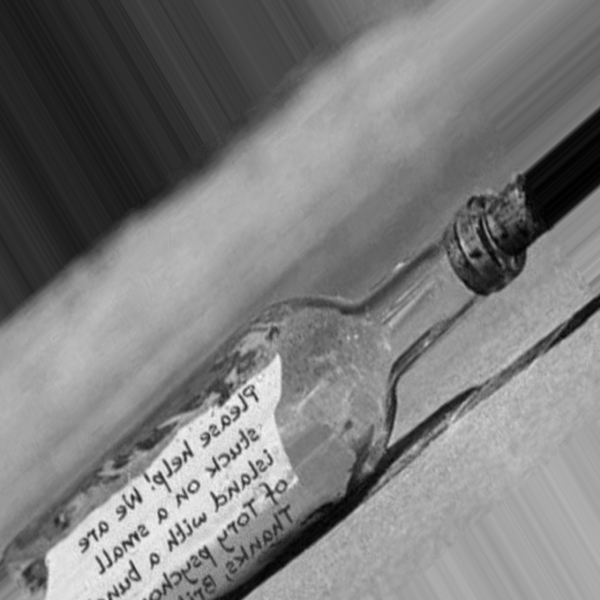 Please help! We are
stuck on a small
island with a bun
of Tory psycho
Thanks, Brit